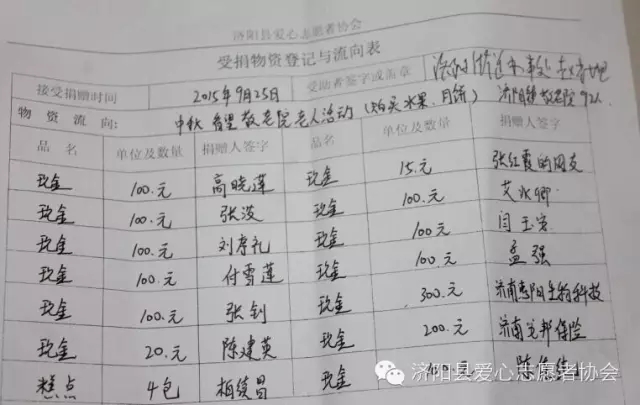 济阳县爱心志愿者协会
受捐物资登记与流向表
接受捐赠时间 2015年9月25日 受助者签字或盖章 济阳街道办事处
物资流向: 中秋 看望敬老院老人活动(购买水果、月饼) 济阳镇敬老院 92人
品名 单位及数量 捐赠人签字 品名 单位及数量 捐赠人签字
现金 100.元 高晓莲 现金 15.元 张红霞的网友
现金 100.元 张波 现金 100.元 艾水卿
现金 100.元 刘孝礼 现金 100.元 闫玉
现金 100.元 付雪莲 现金 100.元 孟强
现金 100.元 张钊 现金 300.元 济南惠阳生物科技
现金 20.元 陈建英 现金 200.元 济南 邦保险
糕点 4包 柏 昌 现金 00.元 陈
济阳县爱心志愿者协会